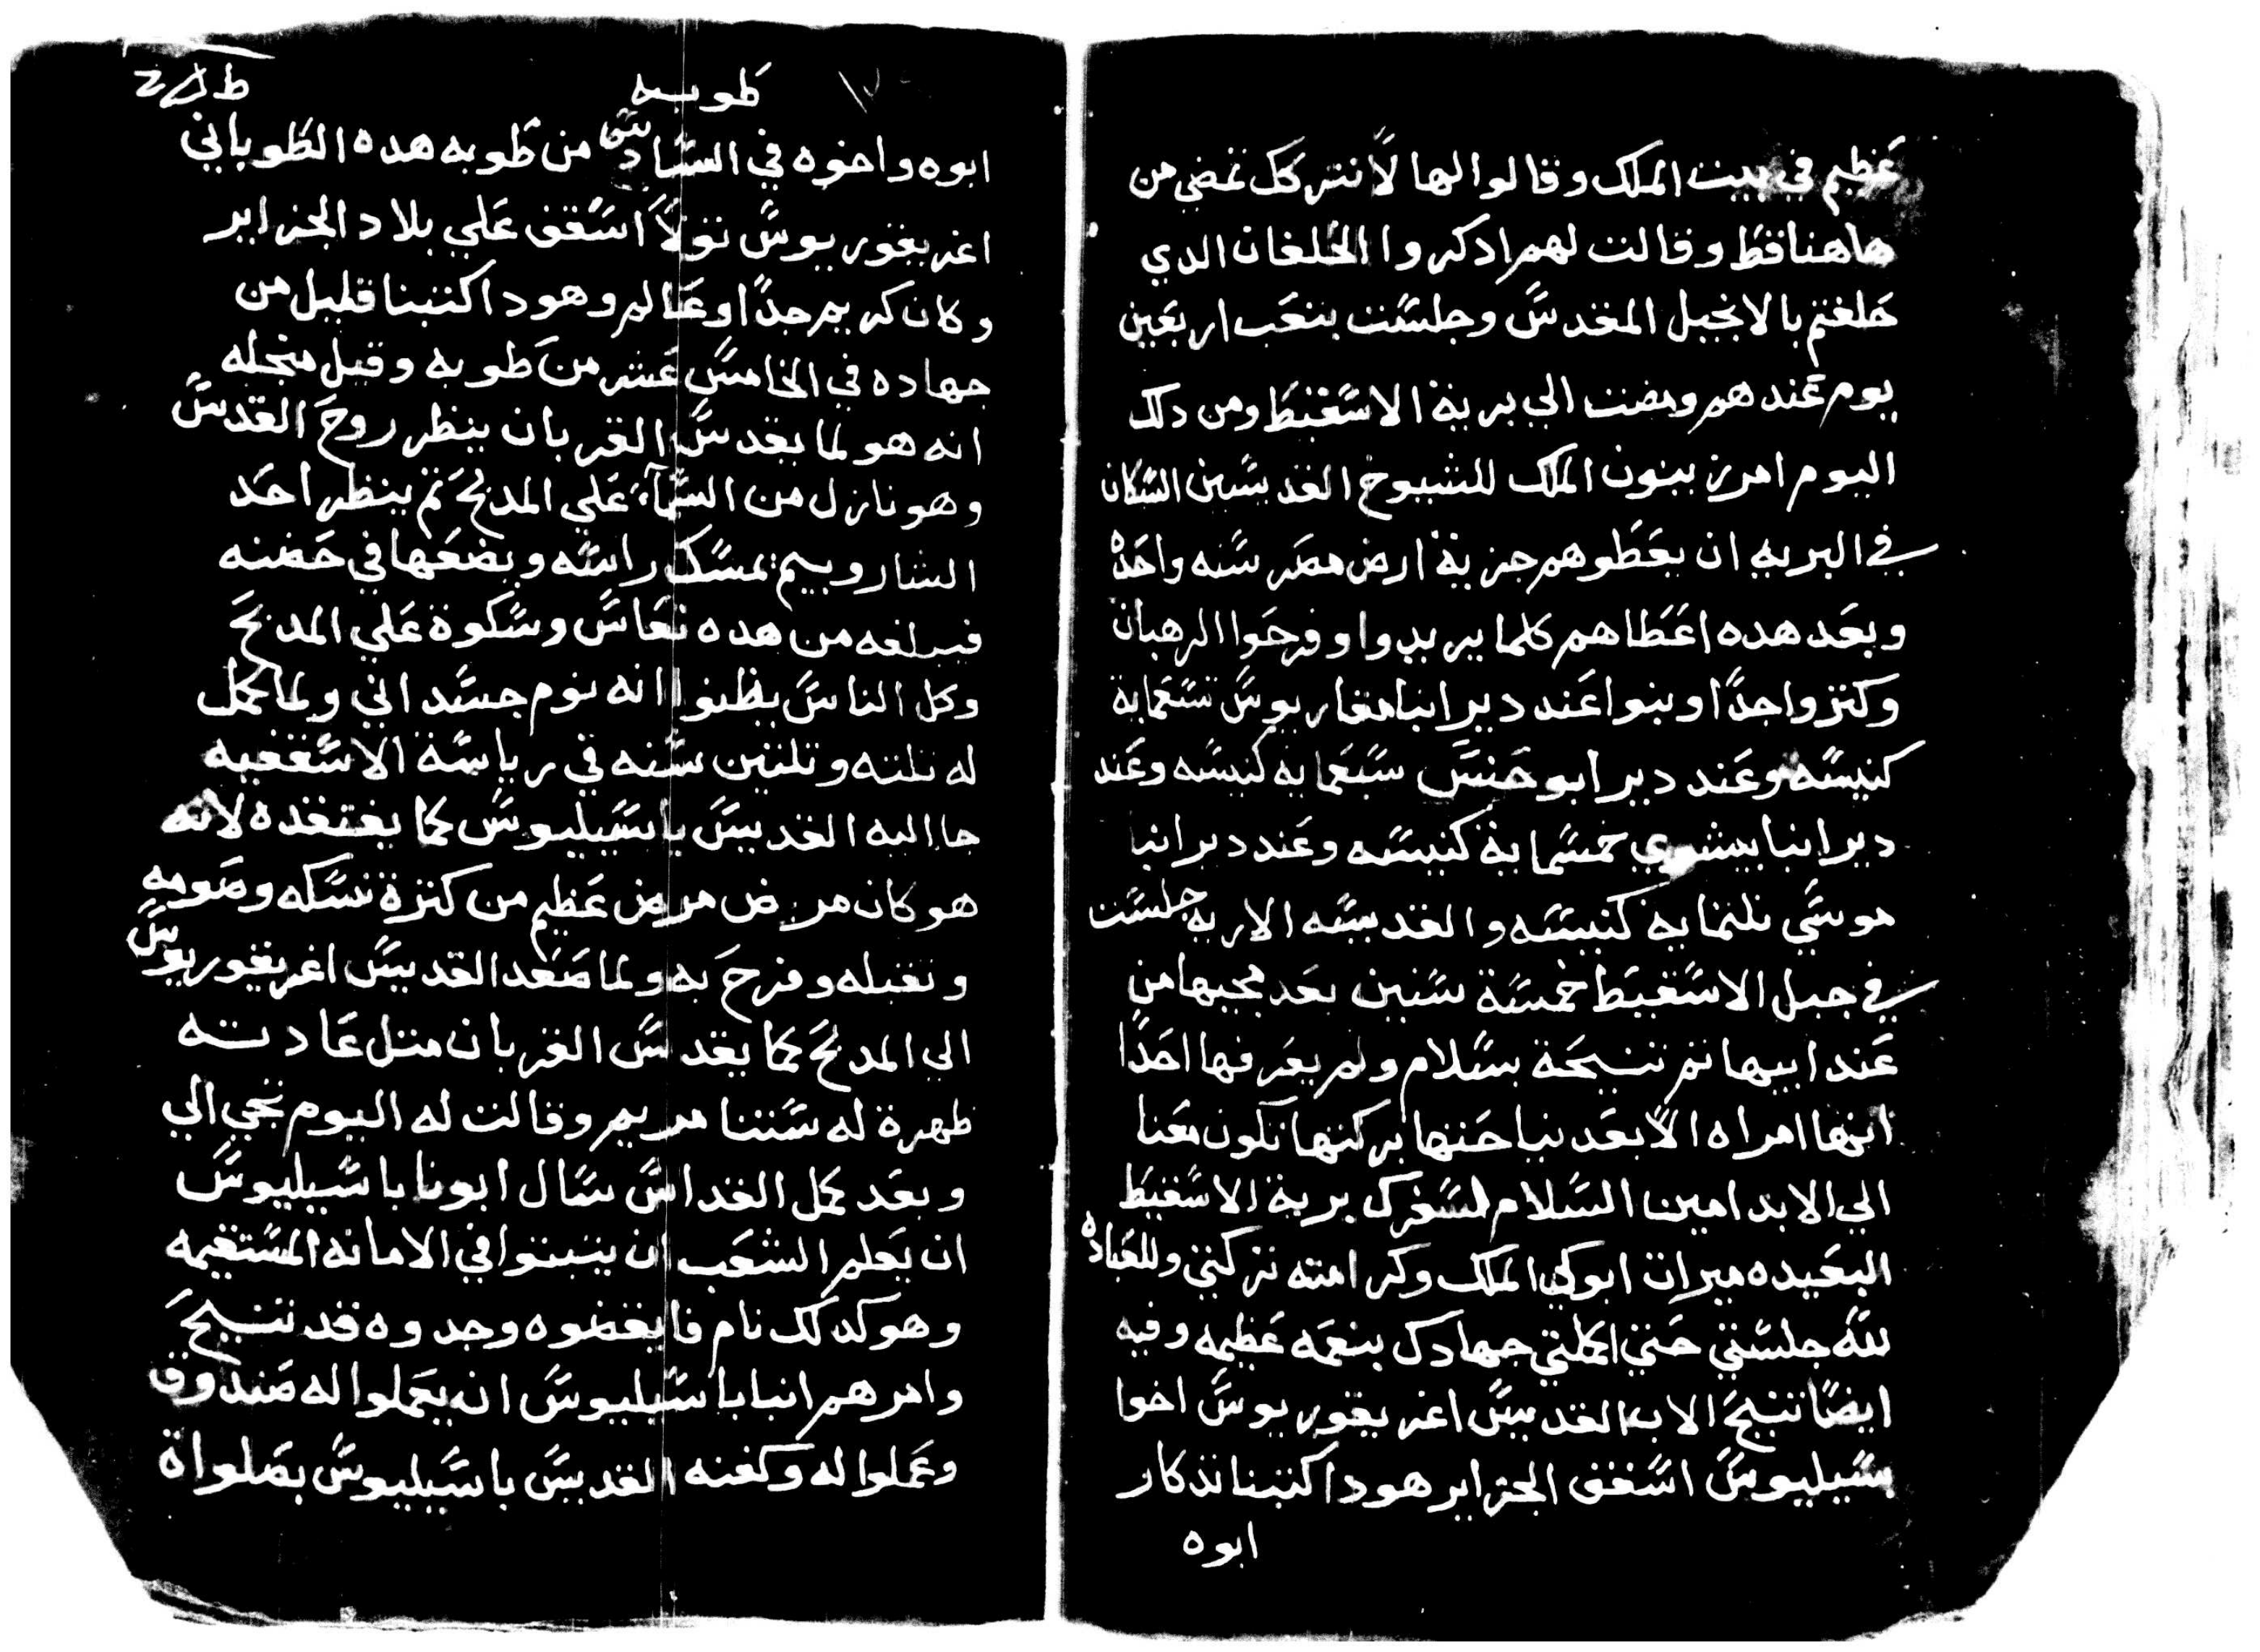 عظيم في بيت الملك وقالوا لها لا نتركك تمضي من
هاهنا قط وقالت لهم ادكروا الحلفان الدي
حلفتم بالانجيل المقدس وجلست بتعب اربعين
يوم عندهم ومضت الي برية الاسقيط ومن دلك
اليوم امر زينون الملك للشيوخ القديسين السكان
في البريه ان يعطوهم جزية ارض مصر سنه واحده
وبعد هده اعطاهم كلما يريدوا وفرحوا الرهبان
وكتروا جدًا وبنوا عند دير انبا مقاريوس تسعماية
كنيسه وعند دير ابو حنس سبعمايه كنيسه وعند
دير انبا بيشوي خمسماية كنيسه وعند دير انبا
موسي تلتمايه كنيسه والقديسه الاريه جلست
في جبل الاسقيط خمسة سنين بعد مجيها من
عند ابيها تم تنيحة بسلام ولم يعرفها احدًا
انها امراه الا بعد نياحتها بركتها تكون معنا
الي الابد امين السلام لسفرك برية الاسقيط
البعيده ميرات ابوكي الملك وكرامته تركتي وللعباده
لله جلستي حتي اكملتي جهادك بنعمه عظيمه وفيه
ايضًا تنيح الاب القديس اغريغوريوس اخوا
بسيليوس اسقف الجزاير هودا كتبنا تدكار
ابوه
طوبه
ابوه واخوه في السادس من طوبه هده الطوباني
اغريغوريوس تولا اسقف علي بلاد الجزاير
وكان كريم جدًا وعالم وهودا كتبنا قليل من
جهاده في الخامس عشر من طوبه وقيل منجله
انه هو لما يقدس القربان ينظر روح القدس
وهو نازل من السماء علي المدبح تم ينظر احد
الشاروبيم يمسك راسه ويضعها في حضنه
فيبلغه من هده نعاس وسكوة علي المدبح
وكل الناس يظنوا انه نوم جسداني ولما كمل
له تلته وتلتين سنه في رياسة الاسقفيه
جا اليه القديس باسيليوس كما يفتقده لانه
هو كان مريض مرض عظيم من كترة نسكه وصومه
وتقبله وفرح به ولما صعد القديس اغريغوريوس
الي المدبح كما يقدس القربان متل عادته
ظهرة له ستنا مريم وقالت له اليوم تجي الي
وبعد كمل القداس سال ابونا باسيليوس
ان يعلم الشعب ان يتبتوا في الامانه المستقيمه
وهو كدلك نام فايقضوه وجدوه قد تنيح
وامرهم انبا باسيليوس ان يعملوا له صندوق
وعملوا له وكفنه القديس باسيليوس بصلواة